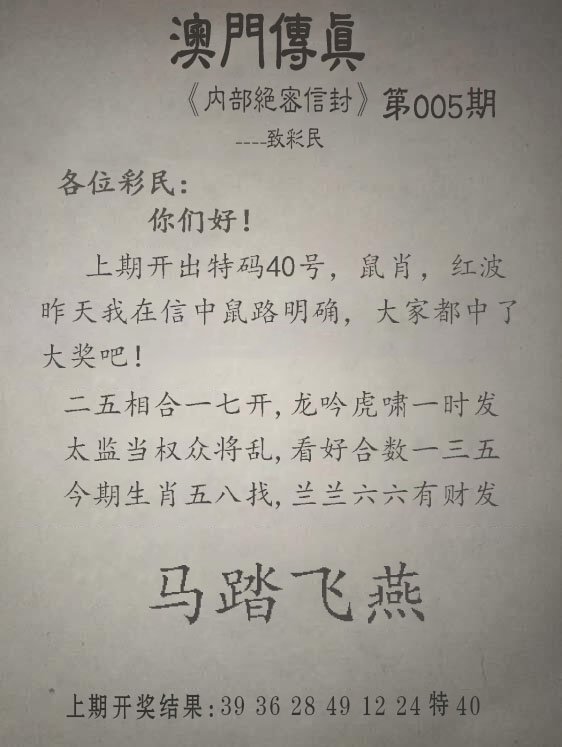 澳門傳真
《内部絕密信封》第005期
----致彩民
各位彩民:
你们好!
上期开出特码40号，鼠肖，红波
昨天我在信中鼠路明确，大家都中了
大奖吧!
二五相合一七开,龙吟虎啸一时发
太监当权众将乱,看好合数一三五
今期生肖五八找,兰兰六六有财发
马踏飞燕
上期开奖结果:39 36 28 49 12 24 特 40